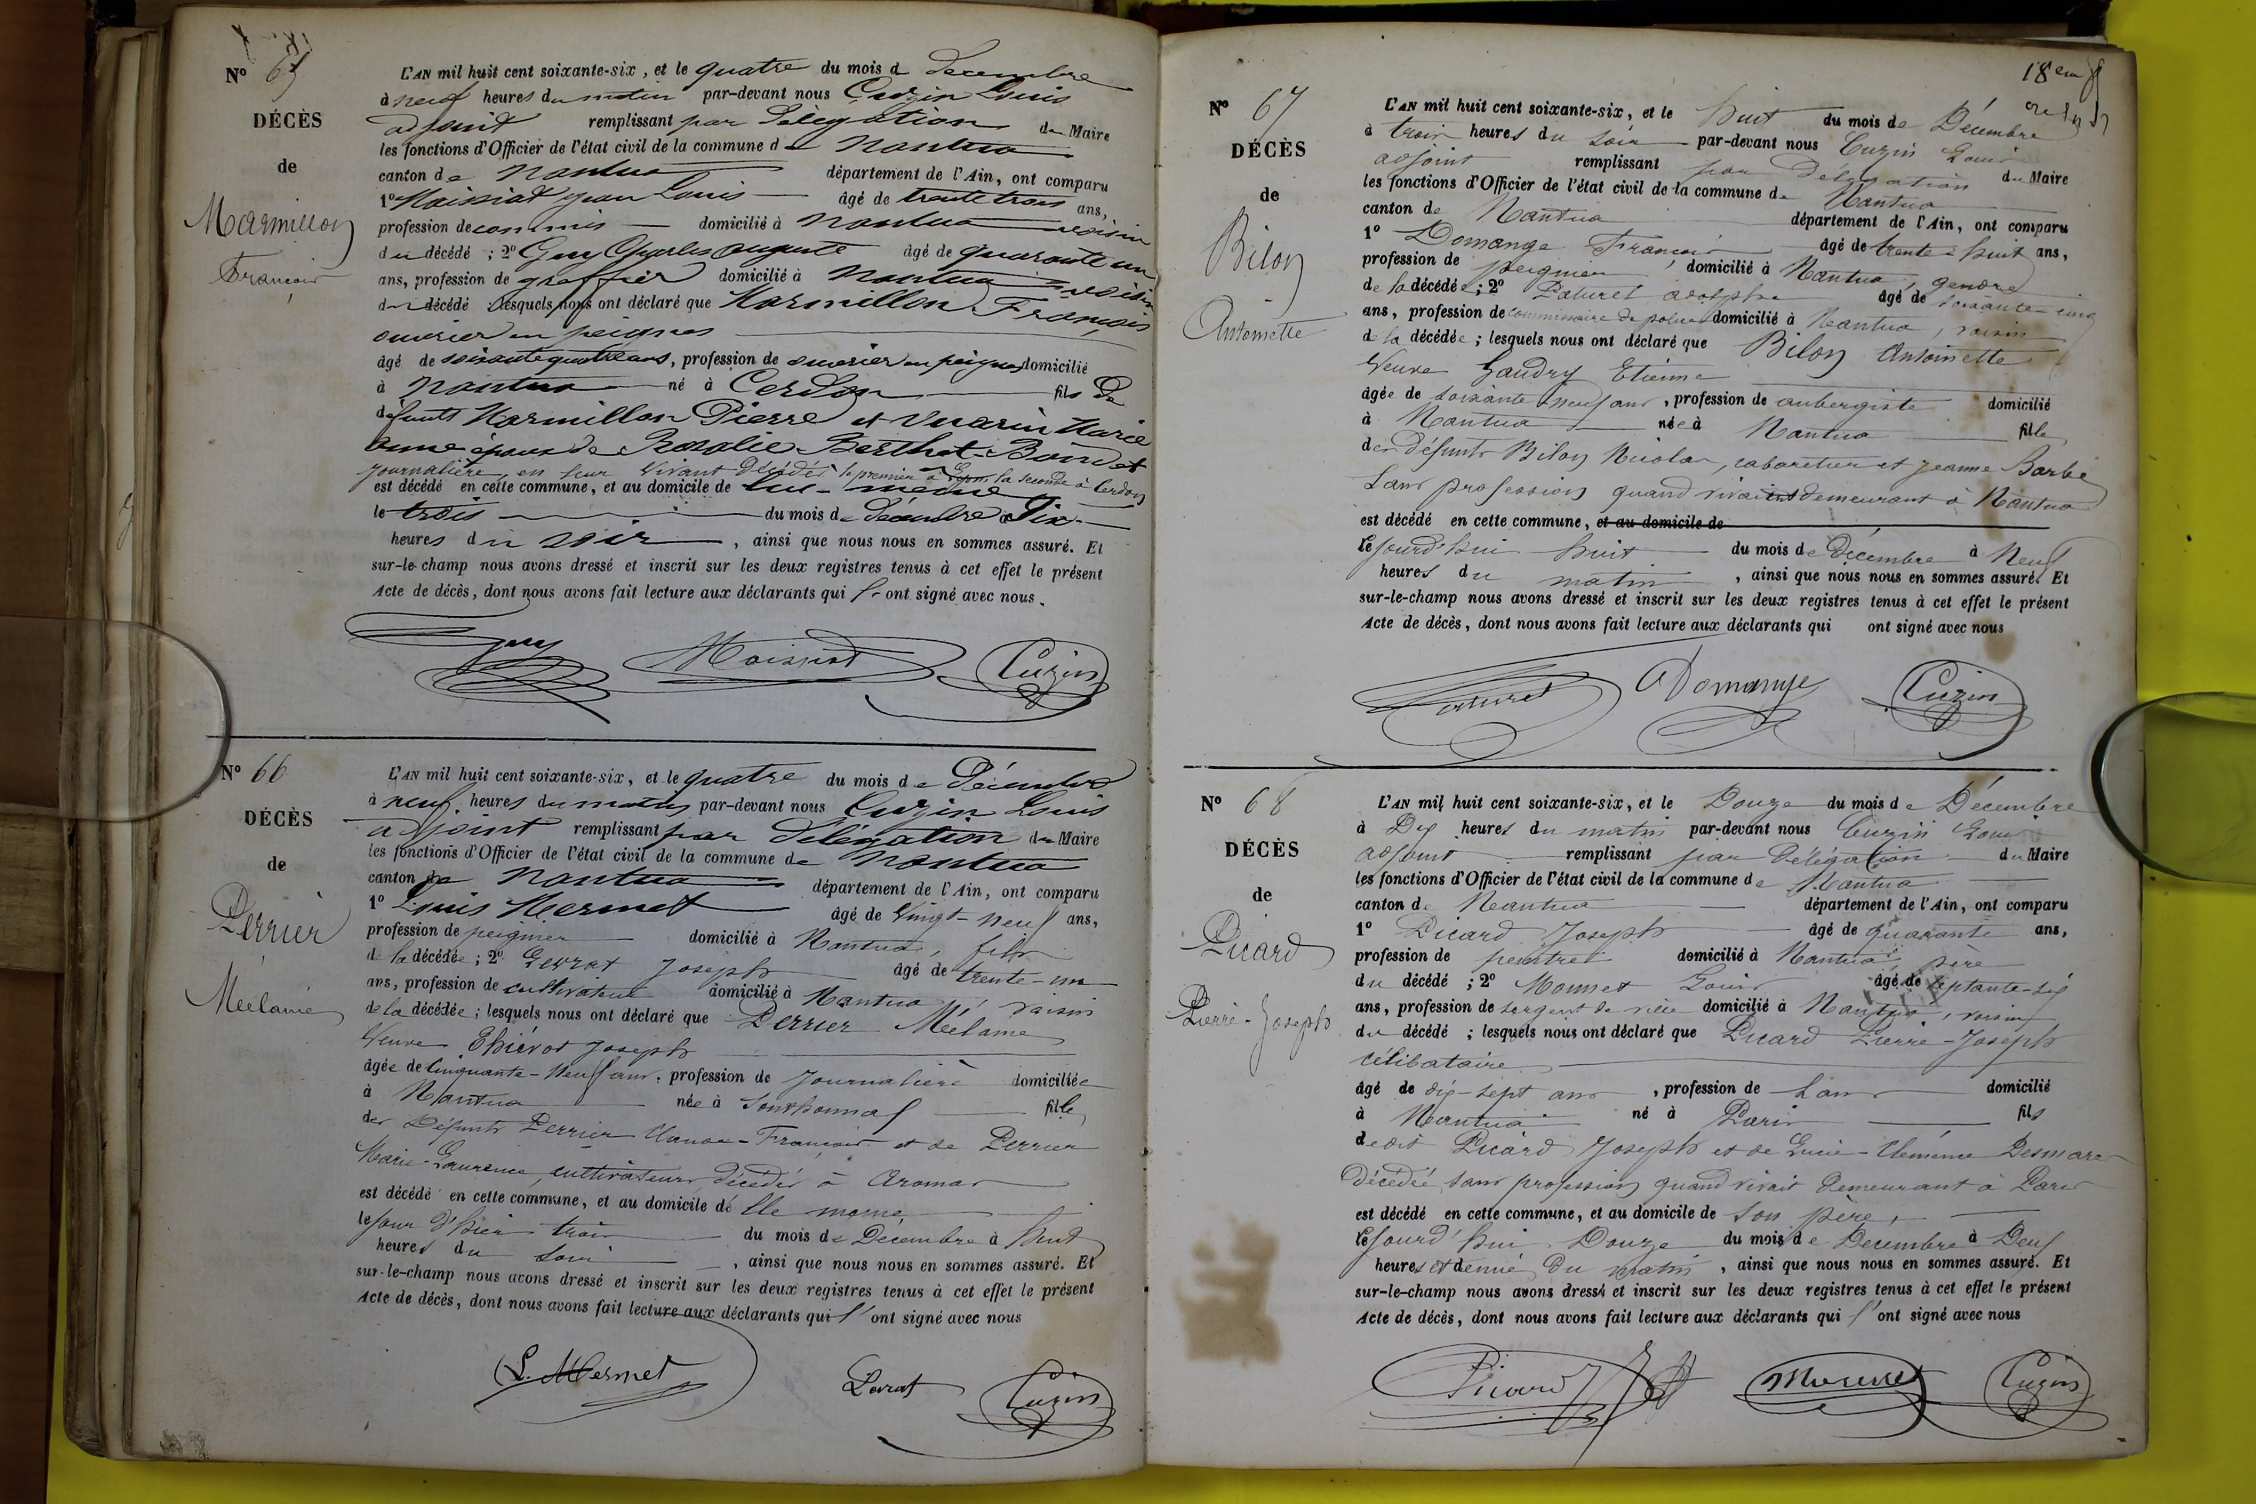 Nº 65
DÉCÈS
de
Marmillon
François
L'AN mil huit cent soixante-six, et le quatre du mois de décembre
à neuf heures du matin par-devant nous Cuzin Louis
adjoint remplissant par délégation du Maire
les fonctions d'Officier de l'état civil de la commune de Nantua
canton de Nantua département de l'Ain, ont comparu
1º Moissiat Jean Louis âgé de trente trois ans,
profession de commis domicilié à Nantua voisin
du décédé ; 2º Guy Charles auguste âgé de quarante un
ans, profession de greffier domicilié à Nantua voisin
du décédé lesquels nous ont déclaré que Marmillon François
ouvrier en peignes
âgé de soixante quatre ans, profession de ouvrier en peignes domicilié
à Nantua né à Cerdon fils de
défunts Marmillon Pierre et Marie
anne époux de Rosalie Berthet-Bondet
journalière, en leur vivant décédés le premier à la seconde à Cerdon
est décédé en cette commune, et au domicile de lui-même
le trois du mois de décembre à Six
heures du soir, ainsi que nous nous en sommes assuré. Et
sur-le-champ nous avons dressé et inscrit sur les deux registres tenus à cet effet le présent
Acte de décès, dont nous avons fait lecture aux déclarants qui l'ont signé avec nous.
Guy Moissiat Cuzin
Nº 66
DÉCÈS
de
Perrier
Mélanie
L'AN mil huit cent soixante-six, et le quatre du mois de Décembre
à neuf heures du matin par-devant nous Cuzin Louis
adjoint remplissant par délégation du Maire
les fonctions d'Officier de l'état civil de la commune de Nantua
canton de Nantua département de l'Ain, ont comparu
1º Louis Mermet âgé de Vingt-neuf ans,
profession de peigner domicilié à Nantua, fils
de la décédée ; 2º Joseph âgé de trente-un
ans, profession de cultivateur domicilié à Nantua, voisin
de la décédée ; lesquels nous ont déclaré que Perrier Mélanie
Veuve Thiévot Joseph
âgée de Cinquante-neuf ans, profession de Journalière domiciliée
à Nantua née à Sonthonnax fille
des Défunts Perrier Claude-François et de Perrier
Marie-Laurence, cultivateurs, décédés à Aromas
est décédé en cette commune, et au domicile de Elle même
le jour d'hier trois du mois de Décembre à huit
heures du soir, ainsi que nous nous en sommes assuré. Et
sur-le-champ nous avons dressé et inscrit sur les deux registres tenus à cet effet le présent
Acte de décès, dont nous avons fait lecture aux déclarants qui l'ont signé avec nous
L. Mermet Cuzin
18em
Nº 67
DÉCÈS
de
Bilon
Antoinette
L'AN mil huit cent soixante-six, et le huit du mois de Décembre
à trois heures du soir par-devant nous Cuzin Louis
adjoint remplissant par Délégation du Maire
les fonctions d'Officier de l'état civil de la commune de Nantua
canton de Nantua département de l'Ain, ont comparu
1º Domange François âgé de trente-huit ans,
profession de peigner, domicilié à Nantua, gendre
de la décédée ; 2º Paturet adolphe âgé de soixante-cinq
ans, profession de commissaire de police domicilié à Nantua, voisin
de la décédée ; lesquels nous ont déclaré que Bilon Antoinette
Veuve Gaudry Etienne
âgée de soixante-neuf ans, profession de aubergiste domicilié
à Nantua née à Nantua fille
des défunts Bilon Nicolas, cabaretier et Jeanne Barbe
sans profession quand vivaient demeurant à Nantua
est décédé en cette commune, et au domicile de
Cejourd'hui huit du mois de Décembre à Neuf
heures du matin, ainsi que nous nous en sommes assuré. Et
sur-le-champ nous avons dressé et inscrit sur les deux registres tenus à cet effet le présent
Acte de décès, dont nous avons fait lecture aux déclarants qui ont signé avec nous
Paturet Domange Cuzin
Nº 68
DÉCÈS
de
Picard
Pierre-Joseph
L'AN mil huit cent soixante-six, et le Douze du mois de Décembre
à Dix heures du matin par-devant nous Cuzin Louis
adjoint remplissant par Délégation du Maire
les fonctions d'Officier de l'état civil de la commune de Nantua
canton de Nantua département de l'Ain, ont comparu
1º Picard Joseph âgé de quarante ans,
profession de peintre domicilié à Nantua, père
du décédé ; 2º Monnet Louis âgé de septante-six
ans, profession de sergent de ville domicilié à Nantua, voisin
du décédé ; lesquels nous ont déclaré que Picard Pierre-Joseph
célibataire
âgé de dix-sept ans, profession de sans domicilié
à Nantua né à Paris fils
dedit Picard Joseph et de Lucie-Clémence Desmares
Décédée sans profession quand vivait demeurant à Paris
est décédé en cette commune, et au domicile de son père,
Cejourd'hui Douze du mois de Décembre à Deux
heures et demie du matin, ainsi que nous nous en sommes assuré. Et
sur-le-champ nous avons dressé et inscrit sur les deux registres tenus à cet effet le présent
Acte de décès, dont nous avons fait lecture aux déclarants qui l'ont signé avec nous
Picard Cuzin